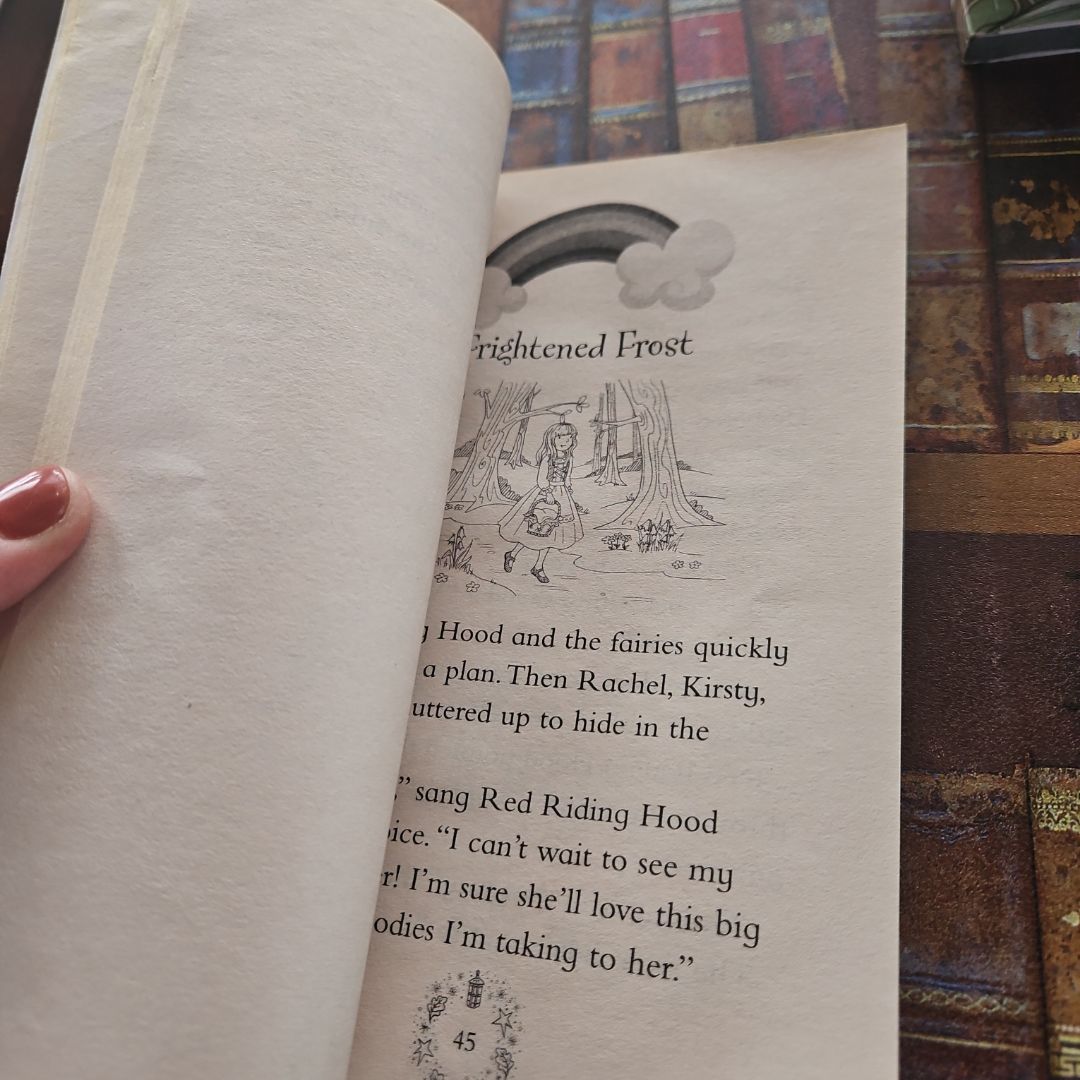 Frightened Frost
Hood and the fairies quickly
a plan. Then Rachel, Kirsty,
uttered up to hide in the
” sang Red Riding Hood
oice. “I can’t wait to see my
r! I’m sure she’ll love this big
odies I’m taking to her.”
45